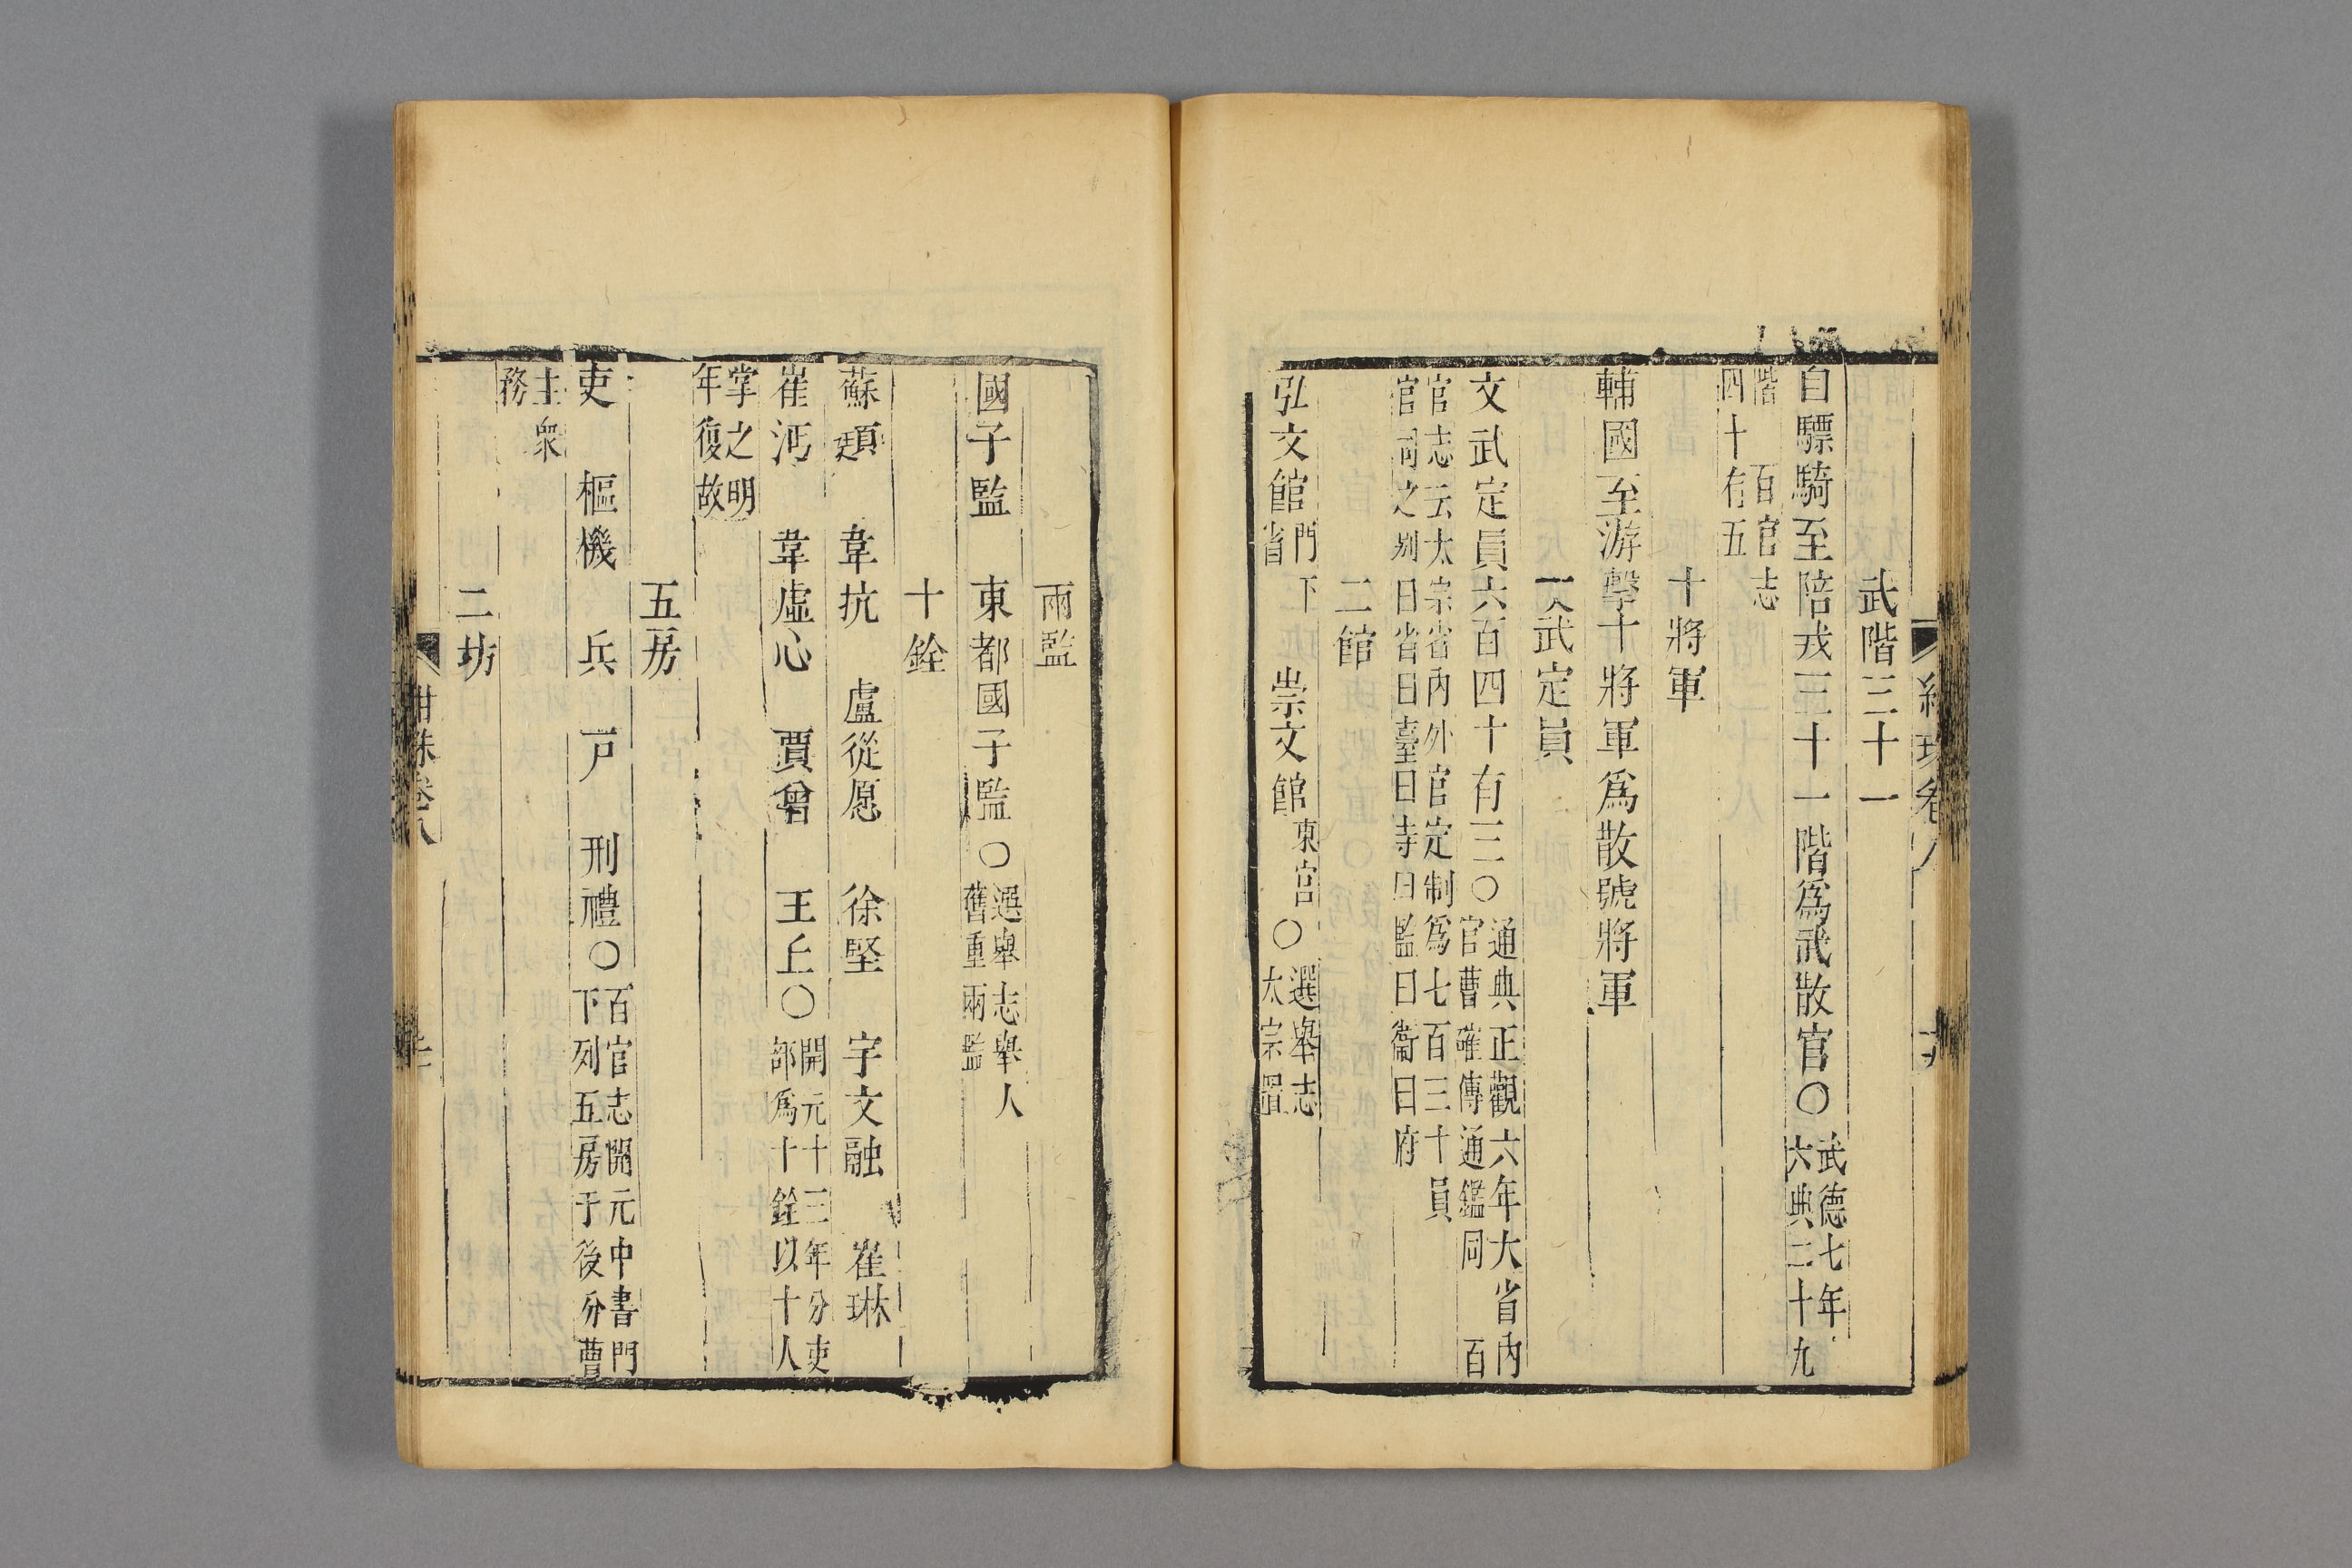 武階三十一
自驃騎至陪戎三十一階爲武散官〇武德七年六典二十九
階百官志四十有五
十將軍
輔國至游擊十將軍爲散號將軍
文武定員
文武定員六百四十有三〇通典正觀六年大省内官曹確傳通鑑同百
官志云太宗省内外官定制爲七百三十員官同之别曰省曰臺曰寺曰監曰衞曰府
二館
弘文館門下省 崇文館東宫〇選舉志太宗置
兩監
國子監 東都國子監〇選舉志舉人舊重兩監
十銓
蘇頲 韋抗 盧從愿 徐堅 宇文融 崔琳
崔沔 韋虛心 賈曾 王丘〇開元十三年分吏部爲十銓以十人
掌之明年復故
五房
吏 樞機 兵 戸 刑禮〇百官志開元中書門下列五房于後分曹
主衆務
二坊
紺珠卷八